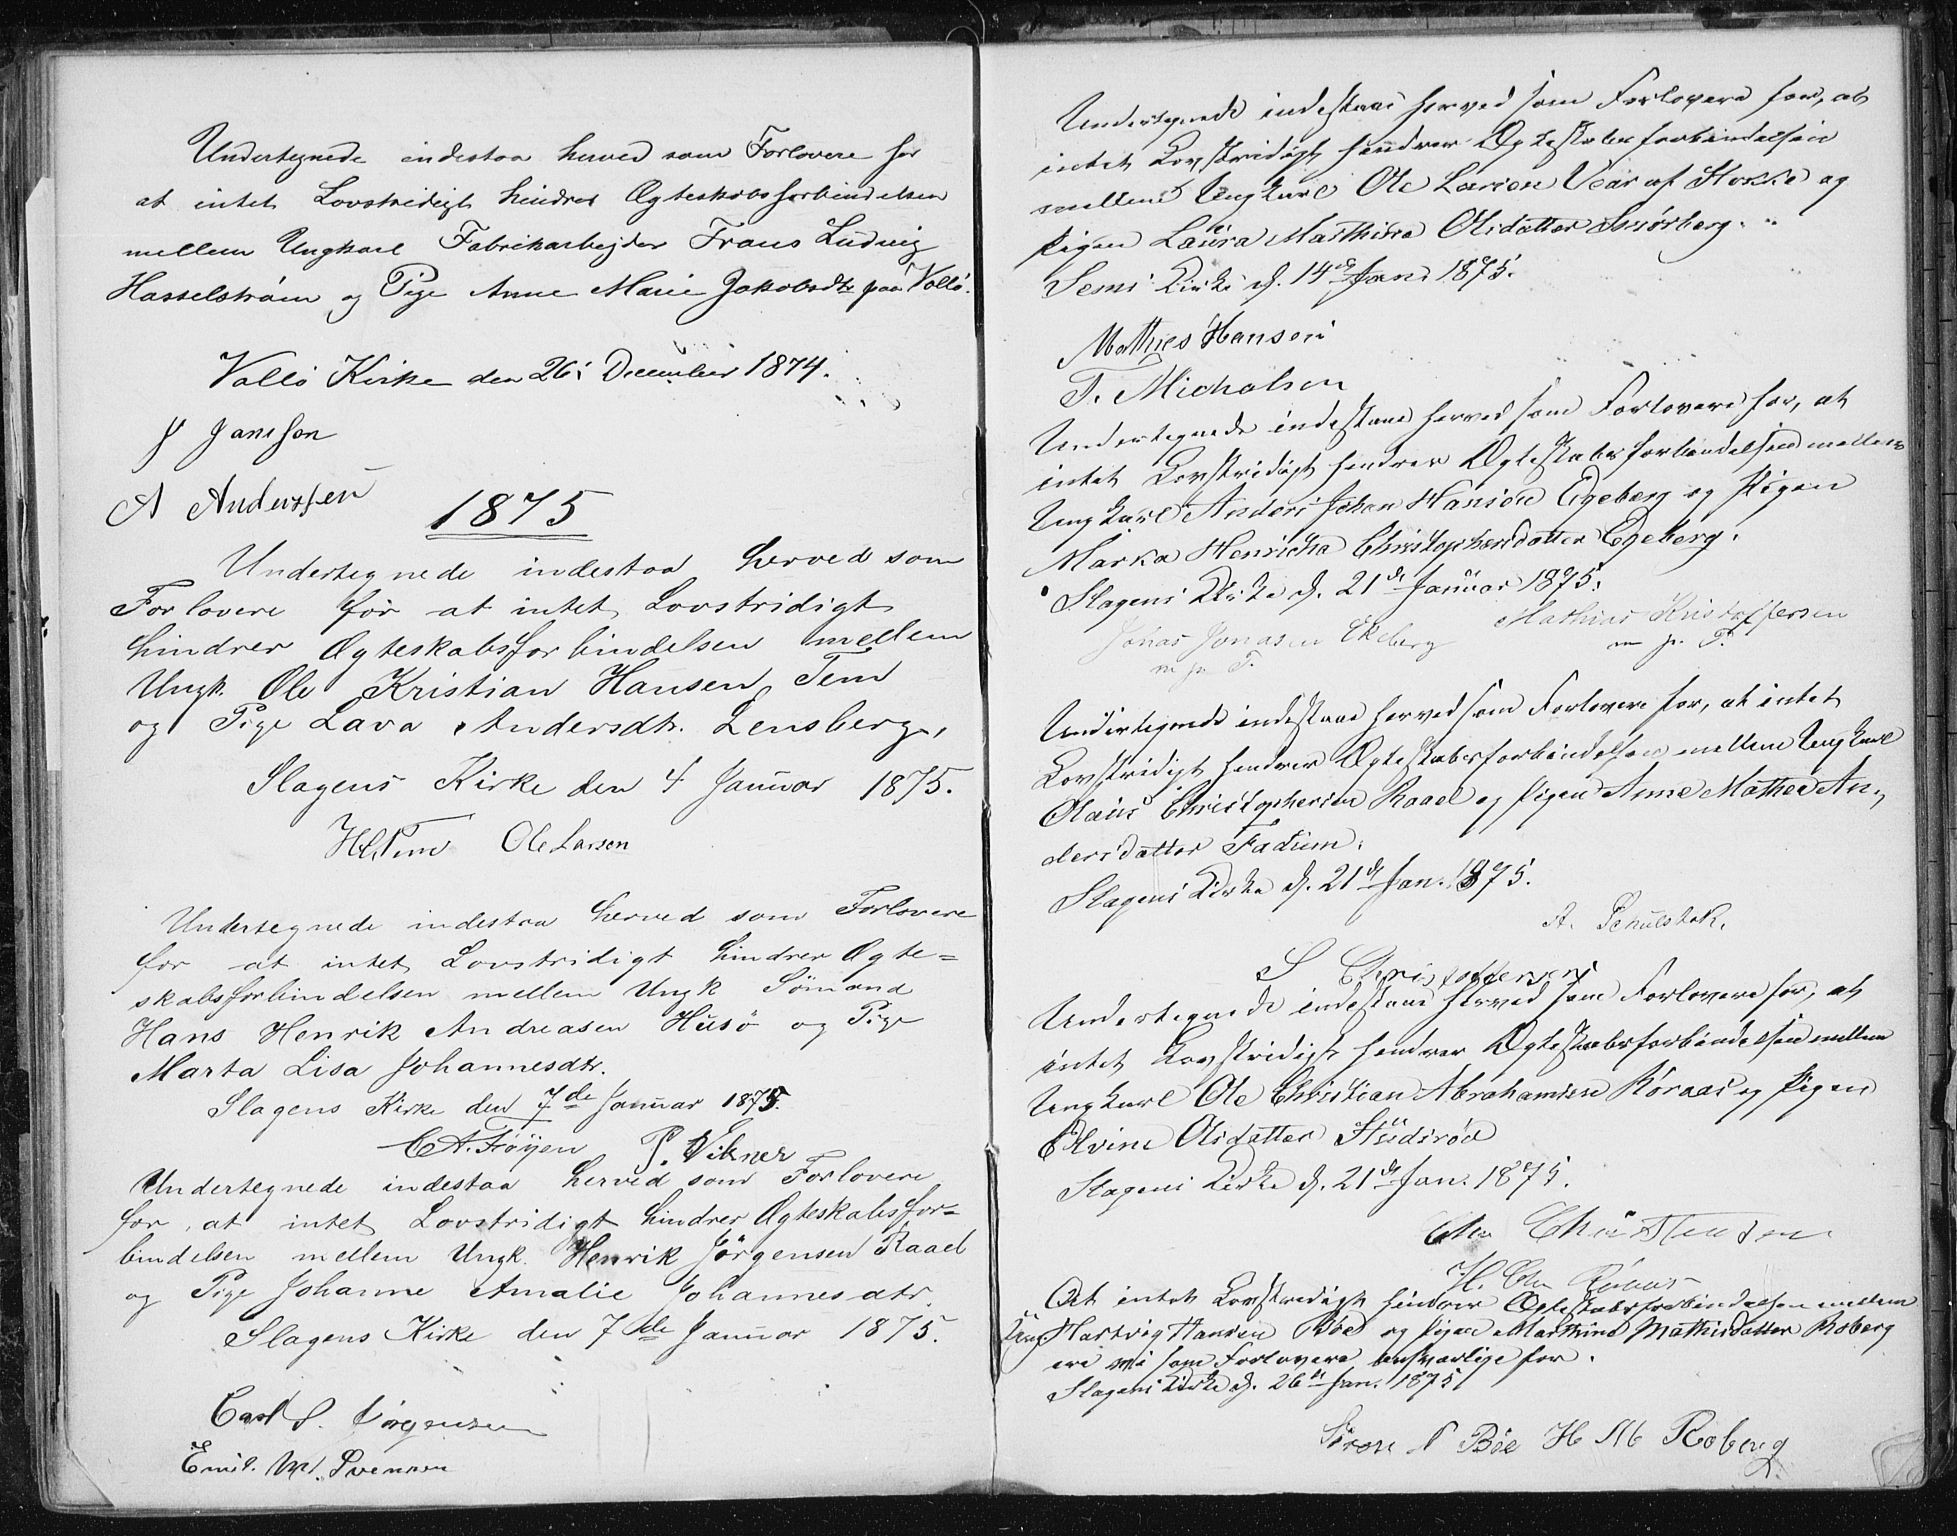 Undertegnede indestaa herved som Forlovere for
at intet Lovstridigt hindrer Ægteskabsforbindelsen
mellem Ungkarl Fabrikarbejder Frans Ludvig
Hasselstrøm og Pige Anne Marie Jakobsdtr paa Vallø.
Vallø Kirke den 26: December 1874.
J Janssen
A Anderssen
1875
Undertegnede indestaa herved som
Forlovere for at intet Lovstridigt
hindrer Ægteskabsforbindelsen mellem
Ungk. Ole Kristian Hansen Tem
og Pige Lava Andersdtr. Lensberg,
Slagens Kirke den 4 Januar 1875.
H. Tem Ole Larsen
Undertegnede indestaa herved som Forlovere
for at intet Lovstridigt hindrer Ægte=
skabsforbindelsen mellem Ungk Sömand
Hans Henrik Andreasen Husö og Pige
Marta Lisa Johannesdtr.
Slagens Kirke den 7de Januar 1875.
C A. Föyen P. Vikner
Undertegnede indestaa herved som Forlovere
for at intet Lovstridigt hindrer Ægteskabsfor=
bindelsen mellem Ungk. Henrik Jörgensen Raael
og Pige Johanne Amalie Johannesdtr.
Slagens Kirke den 7de Januar 1875.
Carl S. Jörgensen
Emil. Svensen
Undertegnede indestaae herved som Forlovere for, at
intet Lovstridigt hindrer Ægteskabsforbindelsen
mellem Ungkarl Ole Larsen Vear af Stokke og
Pigen Laura Mathisa Olsdatter Smørberg.
Sems Kirke d. 14de Jan. 1875.
Mathies Hansen
T. Nicholsen
Undertegnede indestaae herved som Forlovere for, at
intet Lovstridigt hindrer Ægteskabsforbindelsen mellem
Ungkarl Anders Johan Hansen Egeberg og Pigen
Marka Henricha Christophersdatter Egeberg.
Slagens Kirke d. 21de Januar 1875.
Mathias Kristoffersen
Jonas Jonasen Ekeberg m. p. P.
m p P.
Undertegnede indestaae herved som Forlovere for, at intet
Lovstridigt hindrer Ægteskabsforbindelsen mellem Ungkarl
Olaus Christophersen Raael og Pigen Anne Mathea An-
dersdatter Fadum.
Slagens Kirke d. 21de Jan. 1875.
A. Schulstok.
S Christoffersen
Undertegnede indestaae herved som Forlovere for, at
intet Lovstridigt hindrer Ægteskabsforbindelsen mellem
Ungkarl Ole Christian Abrahamsen Röraas og Pigen
Elvine Olsdatter Studsröd
Slagens Kirke d. 21de Jan. 1875.
Chr Christensen
H. Chr Röraas
At intet Lovstridigt hindrer Ægteskabsforbindelsen mellem
Ungk Hartvig Hansen Böe og Pigen Marthine Mathisdatter Roberg
ere vi som Forlovere ansvarlige for.
Slagens Kirke d. 26de Jan. 1875
Sören N Böe H M Roberg